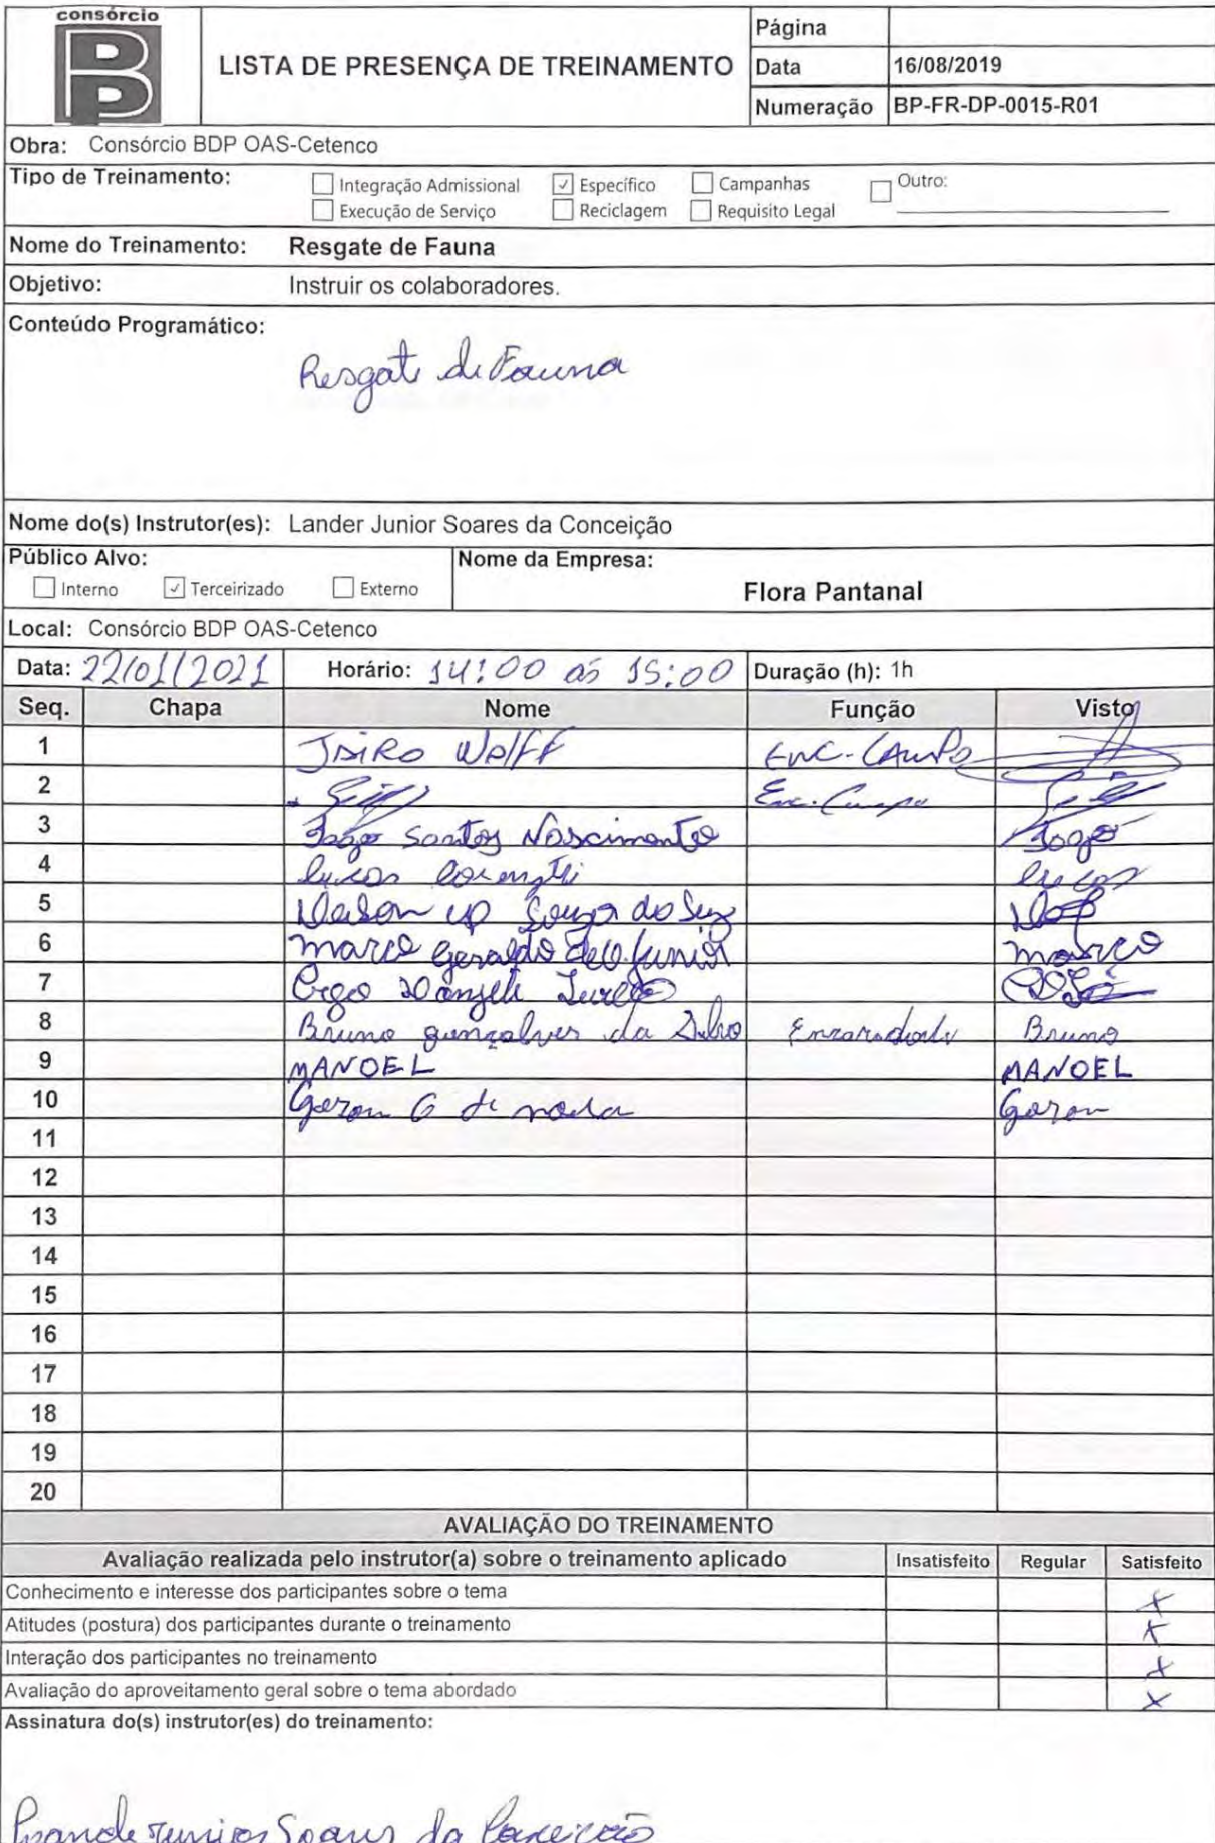 consórcio
LISTA DE PRESENÇA DE TREINAMENTO
Página
Data 16/08/2019
Numeração BP-FR-DP-0015-R01
Obra: Consórcio BDP OAS-Cetenco
Tipo de Treinamento:
Integração Admissional Específico Campanhas Outro:
Execução de Serviço Reciclagem Requisito Legal
Nome do Treinamento: Resgate de Fauna
Objetivo: Instruir os colaboradores.
Conteúdo Programático:
Resgate de Fauna
Nome do(s) Instrutor(es): Lander Junior Soares da Conceição
Público Alvo: Nome da Empresa:
Interno Terceirizado Externo
Flora Pantanal
Local: Consórcio BDP OAS-Cetenco
Data: 22/01/2021 Horário: 14:00 ás 15:00 Duração (h): 1h
Seq. Chapa Nome Função Visto
1 JAIRO Wolff Enc. Campo
2 Enc. Campo
3 Santos Nascimento
4 lucas lucas
5 Souza
6 marco Geraldo junior marco
7
8 Bruno gonçalves da Silva Bruno
9 MANOEL MANOEL
10 Gerson G de Gerson
11
12
13
14
15
16
17
18
19
20
AVALIAÇÃO DO TREINAMENTO
Avaliação realizada pelo instrutor(a) sobre o treinamento aplicado Insatisfeito Regular Satisfeito
Conhecimento e interesse dos participantes sobre o tema X
Atitudes (postura) dos participantes durante o treinamento X
Interação dos participantes no treinamento X
Avaliação do aproveitamento geral sobre o tema abordado X
Assinatura do(s) instrutor(es) do treinamento:
Junior Soares da Conceição